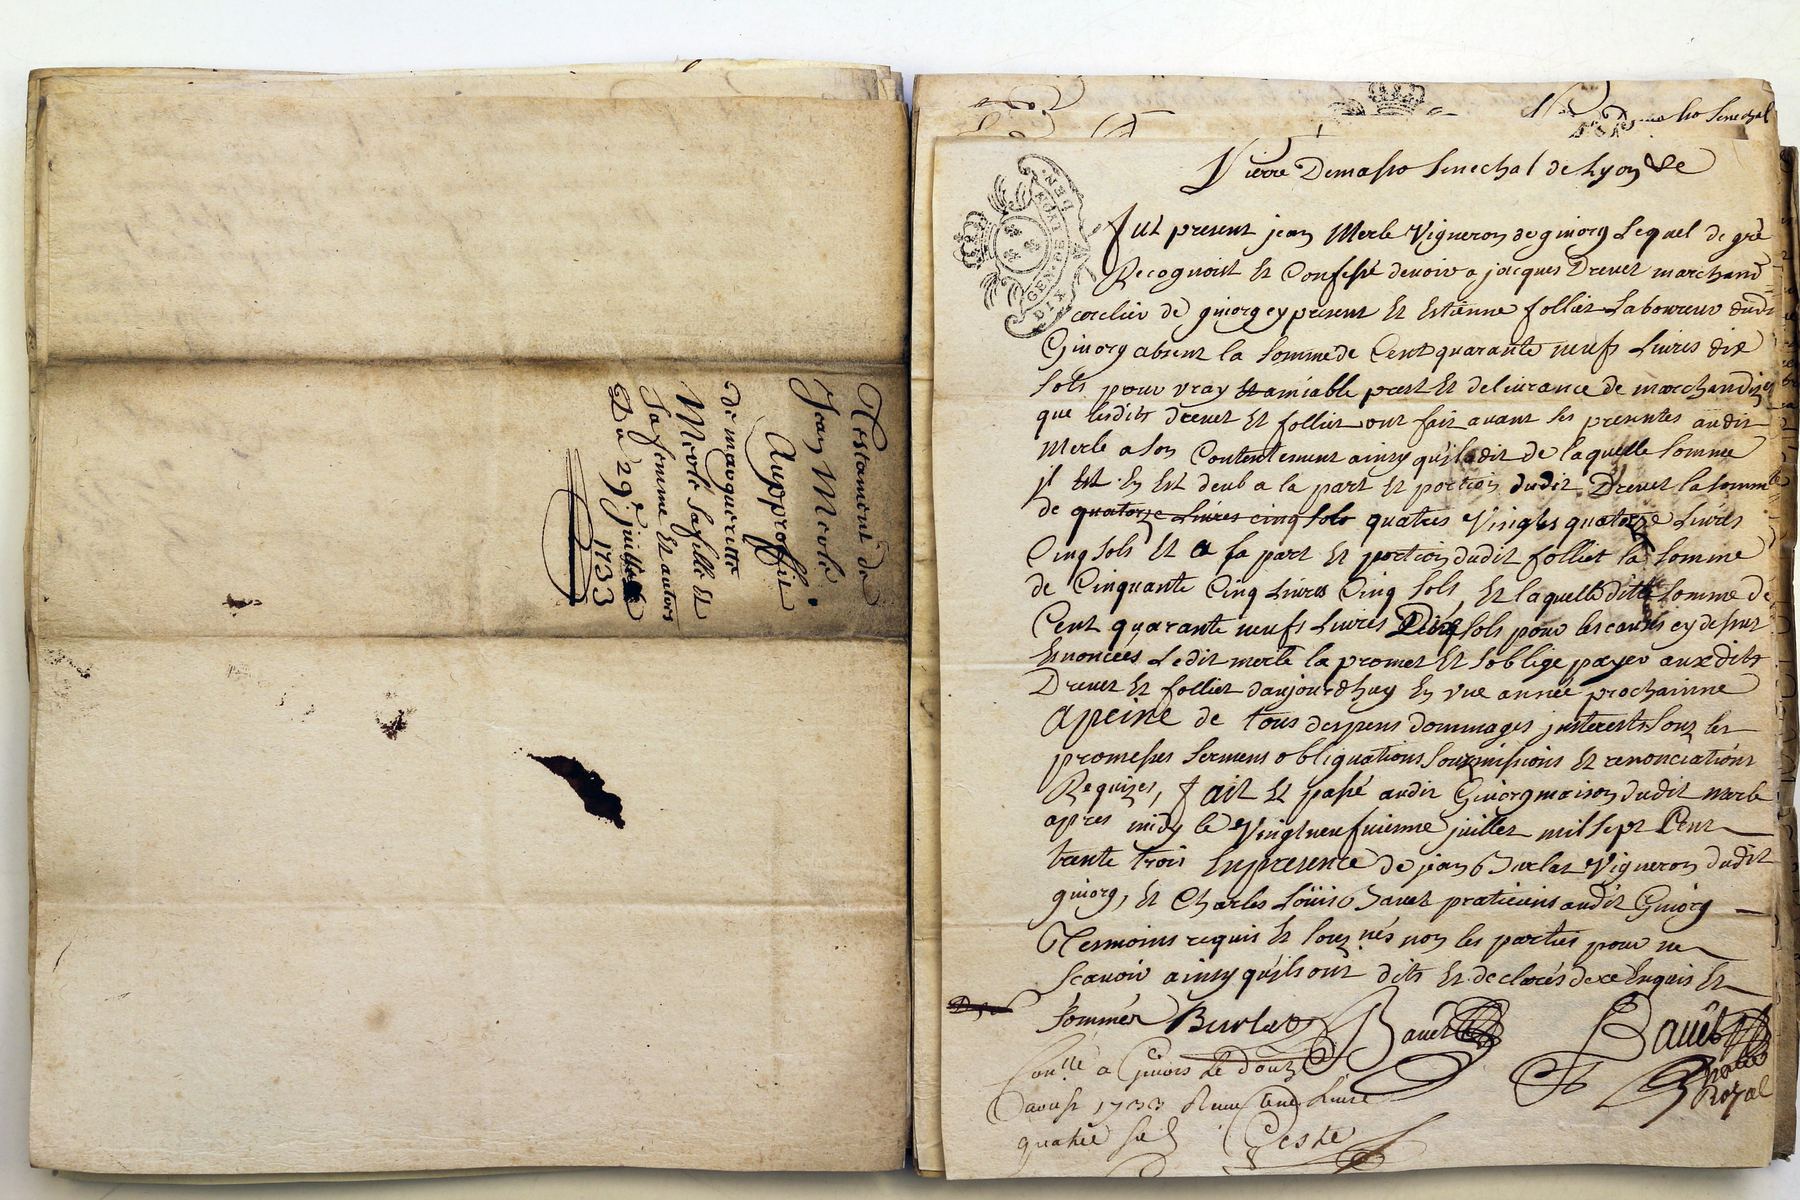 Testament de
Jean Merle
Aupproffit
de margueritte
Merle sa fille Et
sa femme Et autres
Du 29e juillet
1733
Senechal
GEN. DE LYON
DIX DEN.
Pierre Demasso Senechal de Lyon &c
Fut present jean Merle Vigneron de givorg Lequel de gré
Recognoist Et Confesse devoir a jacques Drevet marchand
cordier de givorg cy present Et Estienne folliet Laboureur dudit
Givorg absent la somme de Cent quarante neufs Livres dix
sols pour vray Et amiable prest Et delivrance de marchandizes
que lesdits drevet Et folliet ont fait avant les presentes audit
Merle a son Contentement ainsy qu'il a dit de laquelle somme
jl Est En Est deub a la part Et portion dudit Drevet la somme
de quatorze Livres cinq sols quatres Vingts quatorze Livres
Cinq sols Et a la part Et portion dudit folliet la somme
de Cinquante Cinq Livres Cinq sols, Et laquelle ditte somme de
Cent quarante neufs Livres Dix sols pour les causes cy dessus
Enoncées Ledit merle la promet Et s'oblige payer auxdits
Drevet Et folliet daujourdhuy En une année prochainne
a peine de tous despens dommages jnterests sous les
promesses sermens obligations soumissions Et renonciations
Requizes, fait Et passé audit Givorg maison dudit merle
apres midy le Vingtneufvieme juillet mil sept Cent
trente trois En presence de jean Burlat Vigneron dudit
givorg, Et Charles Loüis Bavet praticiens audit Givorg
Tesmoins requis Et souz.nés non les parties pour ne
scavoir ainsy qu'ils ont dits Et declarés de ce Enquis Et
sommés Burlat Bavet Bavet
notaire
Royal
Con.llé a Givors le douze
daoust 1733 Livre
quatre sols Geste